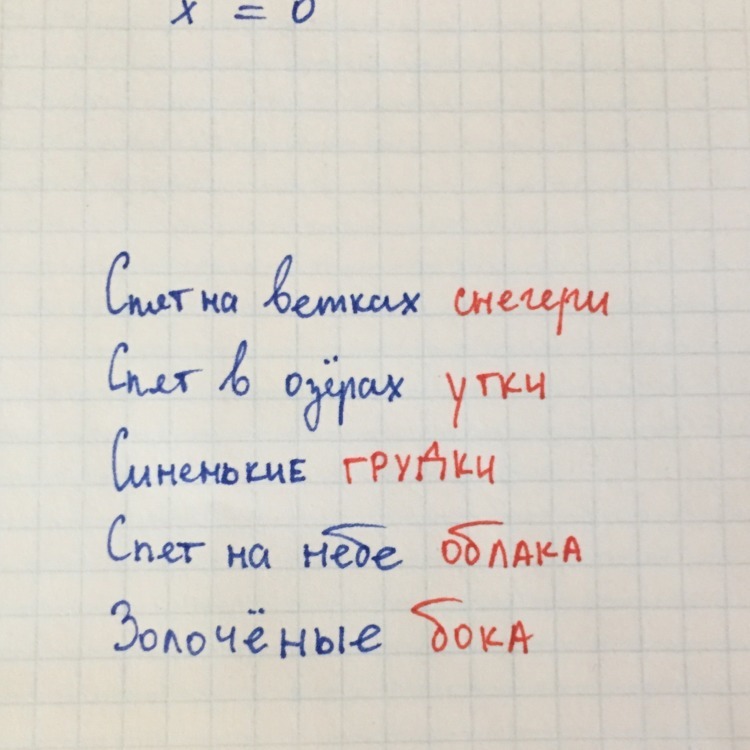 x = 0
Спят на ветках снегери
Спят в озёрах утки
Синенькие грудки
Спет на небе облака
Золочёные бока